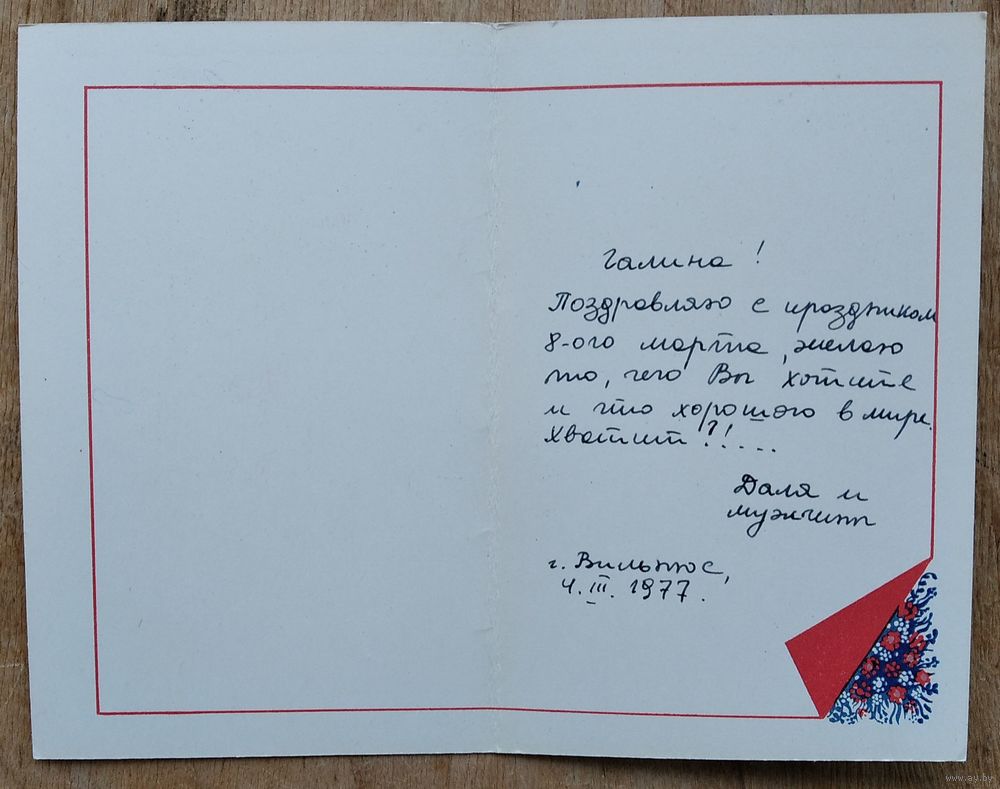 Галина!
Поздравляю с праздником
8-ого марта, желаю
то, чего Вы хотите
и что хорошого в мире.
Хватит?!...
Даля и
мужчин
г. Вильнюс,
4.III.1977.
www.ay.by